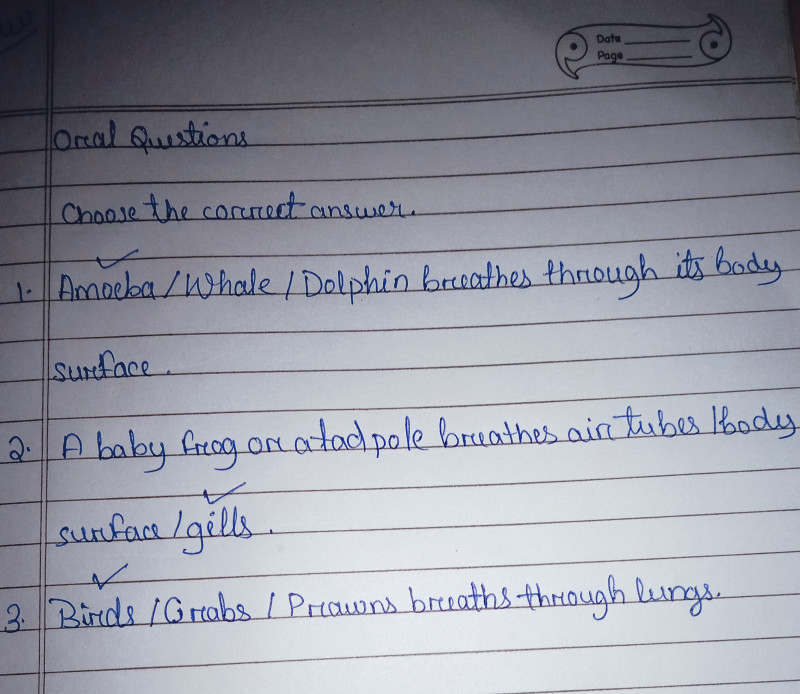 Date
Page
Oral Questions
Choose the correct answer.
1. Amoeba / Whale / Dolphin breathes through its body
surface.
2. A baby frog or a tadpole breathes air tubes / body
surface / gills.
3. Birds / Crabs / Prawns breaths through lungs.